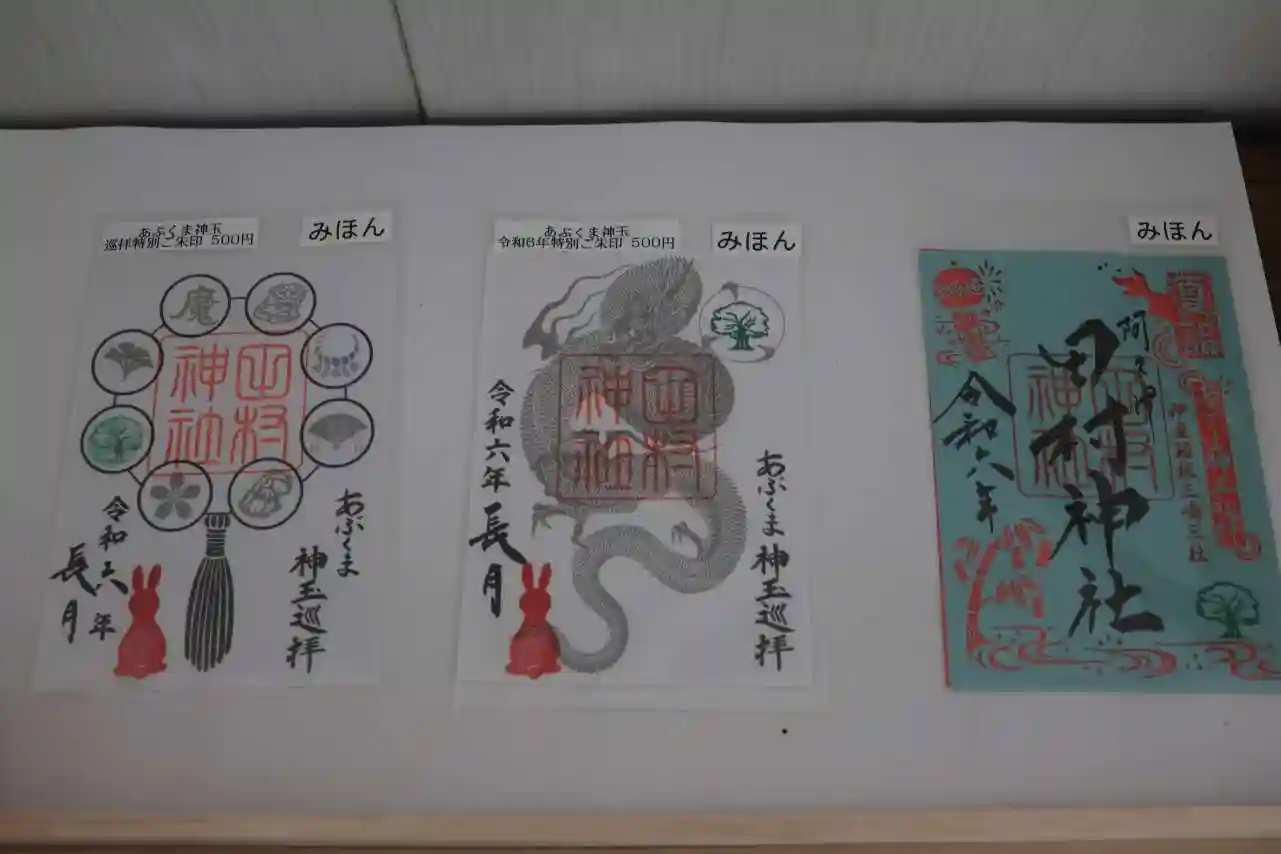 あぶくま神玉
巡拝特別ご朱印 500円
みほん
魔
田村
神社
あぶくま
神玉巡拝
令和六年
長月
あぶくま神玉
令和6年特別ご朱印 500円
みほん
田村
神社
あぶくま
神玉巡拝
令和六年
長月
みほん
田村神社
田村
神社
令和六年